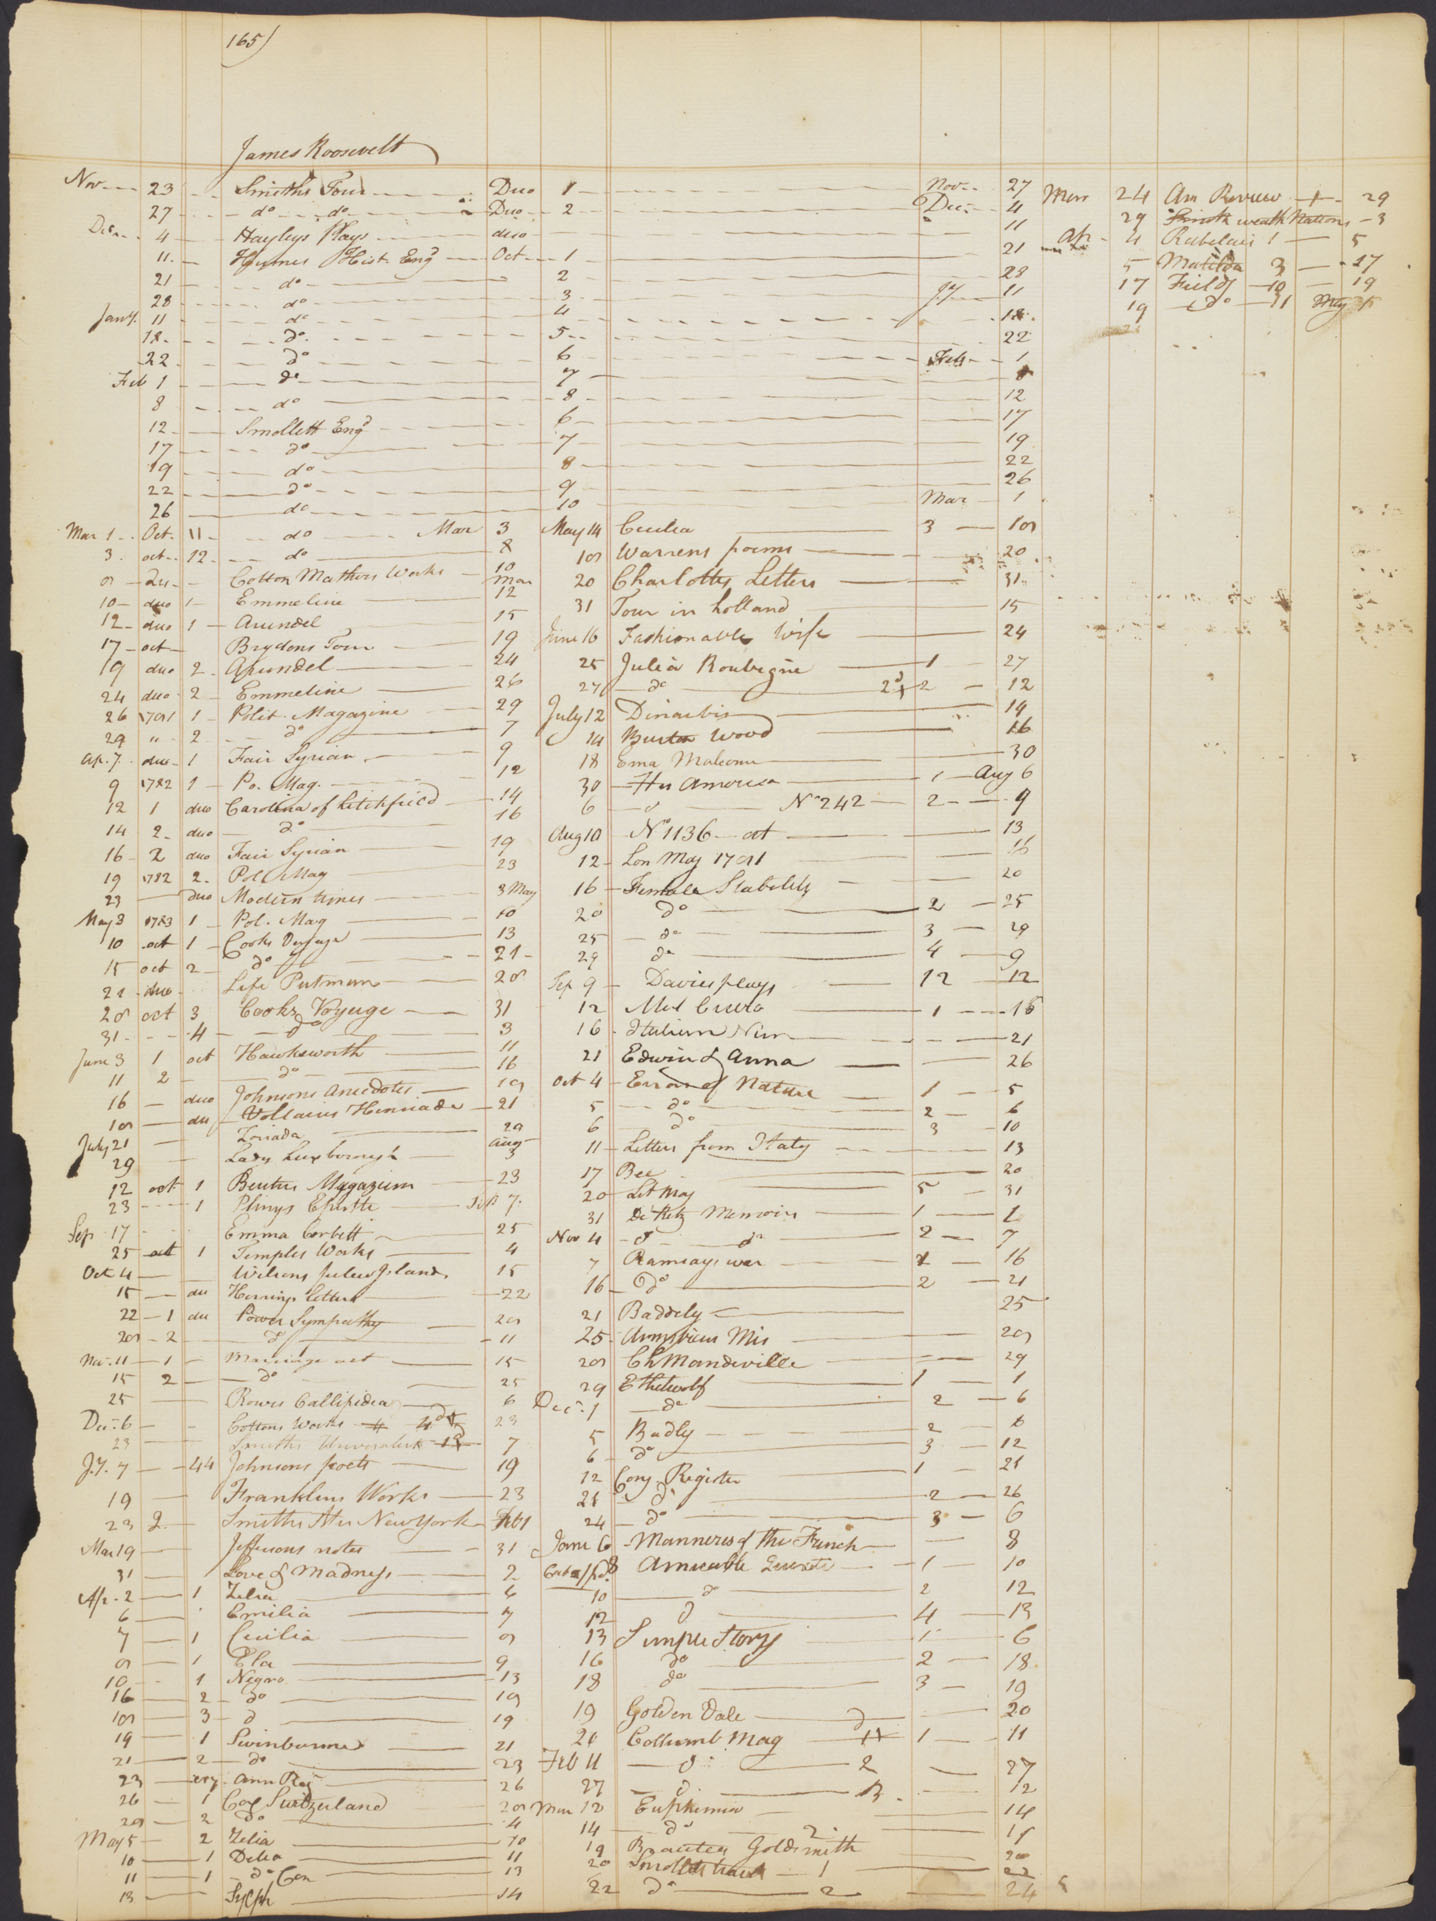 165)
James Roosevelt
Nov 23 Smiths Tour Duo 1 Nov 27
27 do do Duo 2 Dec 4
Dec 4 Hayleys Plays duo 11
11 Humes Hist Eng Oct 1 21
21 do 2 28
28 do 3 Jy 11
Jany 11 do 4 18
18 do 5 22
22 do 6 Feb 1
Feb 1 do 7 8
8 do 8 12
12 Smollett Engd 6 17
17 do 7 19
19 do 8 22
22 do 9 26
26 do 10 Mar 1
Mar 1 Oct 11 do Mar 3
3 oct 12 do 8
8 du Cotton Mathers Works 10
10 duo 1 Emmeline mar 12
12 duo 1 Arundel 15
17 oct Brydons Tour 19
19 duo 2 Arundel 24
24 duo 2 Emmeline 26
26 1781 1 Polit. Magazine 29
29 " 2 do 7
Ap. 7 duo 1 Fair Syrian 9
9 1782 1 Po. Mag. 12
12 1 duo Carolina of Litchfield 14
14 2 duo do 16
16 2 duo Fair Syrian 19
19 1782 2 Pol Mag 23
23 duo Modern times 3 May
May 3 1783 1 Pol. Mag 10
10 oct 1 Cooks Voyage 13
15 oct 2 do 21
21 duo Life Putnam 28
28 oct 3 Cooks Voyage 31
31 4 do 3
June 3 1 oct Hawksworth 11
11 2 do 16
16 duo Johnsons Anecdotes 18
18 du Voltaires Henriade 21
July 21 Zoriada 29
29 Lady Luxborough Aug 3
12 oct 1 Beuties Magazine 23
23 1 Plinys Epistle Sep 7
Sep 17 Emma Corbett 25
25 oct 1 Temples Works 4
Oct 4 Wilsons Pelew Islands 15
15 du Herrings letters 22
22 1 du Power Sympathy 28
28 2 do 11
Nov. 11 1 Marriage act 15
15 2 do 25
25 Rowes Callipidea 6
Dec. 6 Cottons Works 23
23 Smiths 7
J.y. 7 44 Johnsons poets 19
19 Franklins Works 23
23 2 Smiths His New York Feb 1
Mar 19 Jeffersons notes 31
31 Love & Madness 2
Ap. 2 1 Zelia 6
6 Emilia 7
7 1 Cecilia 8
8 1 Ela 9
10 1 Negro 13
16 2 do 18
18 3 do 19
19 1 Swinburne 21
21 2 do 23
23 Ann Reg 26
26 1 Cox Switzerland 28
28 2 do 4
May 5 2 Zelia 10
10 1 Delia 11
11 1 do 13
13 Sylph 14
May 14 Cecilia 3 18
18 Warrens poems 20
20 Charlottes Letters 31
31 Tour in holland 15
June 16 Fashionable Wife 24
25 Julia Roubigne 1 27
27 do 2 12
July 12 Dinarbis 14
14 Burton Wood 16
18 Ema Malcome 30
30 His America 1 Aug 6
6 do No 242 2 9
Aug 10 No 1136 at 13
12 Lon Mag 1781 16
16 Female Stability 20
20 do 2 25
25 do 3 29
29 do 4 9
Sep 9 Davies plays 12 12
12 1 16
16 Italian Nun 21
21 Edwin & Anna 26
Oct 4 Errors of Nature 1 5
5 do 2 6
6 do 3 10
11 Letters from Italy 13
17 Bee 20
20 Lit Mag 5 31
31 De Retz Memoirs 1 1
Nov 4 do do 2 7
7 Ramsays war 1 16
16 do 2 21
21 Baddely 25
25 Armstrons Mis 28
28 Ch Mandeville 29
29 Ethelwolf 1 1
Dec. 1 do 2 6
5 Badly 2 6
6 do 3 12
12 Cong Register 1 21
21 do 2 26
24 do 3 6
Jany 6 Manners of the French 8
8 Amicable Quixote 1 10
10 do 2 12
12 do 4 13
13 Simple Story 1 6
16 do 2 18
18 do 3 19
19 Golden Dale 20
21 Collumb Mag 1 11
Feb 11 do 2 27
27 do 3 12
Mar 12 Euphemia 14
14 do 2 19
19 Beauties Goldsmith 20
20 Smolletts travels 1 22
22 do 2 24
Mar 24 Am Review 1 29
29 Smith wealth Nations 3
Ap. 4 Rabelais 1 5
5 Matilda 3 17
17 Field 10 19
19 do 11 May 5